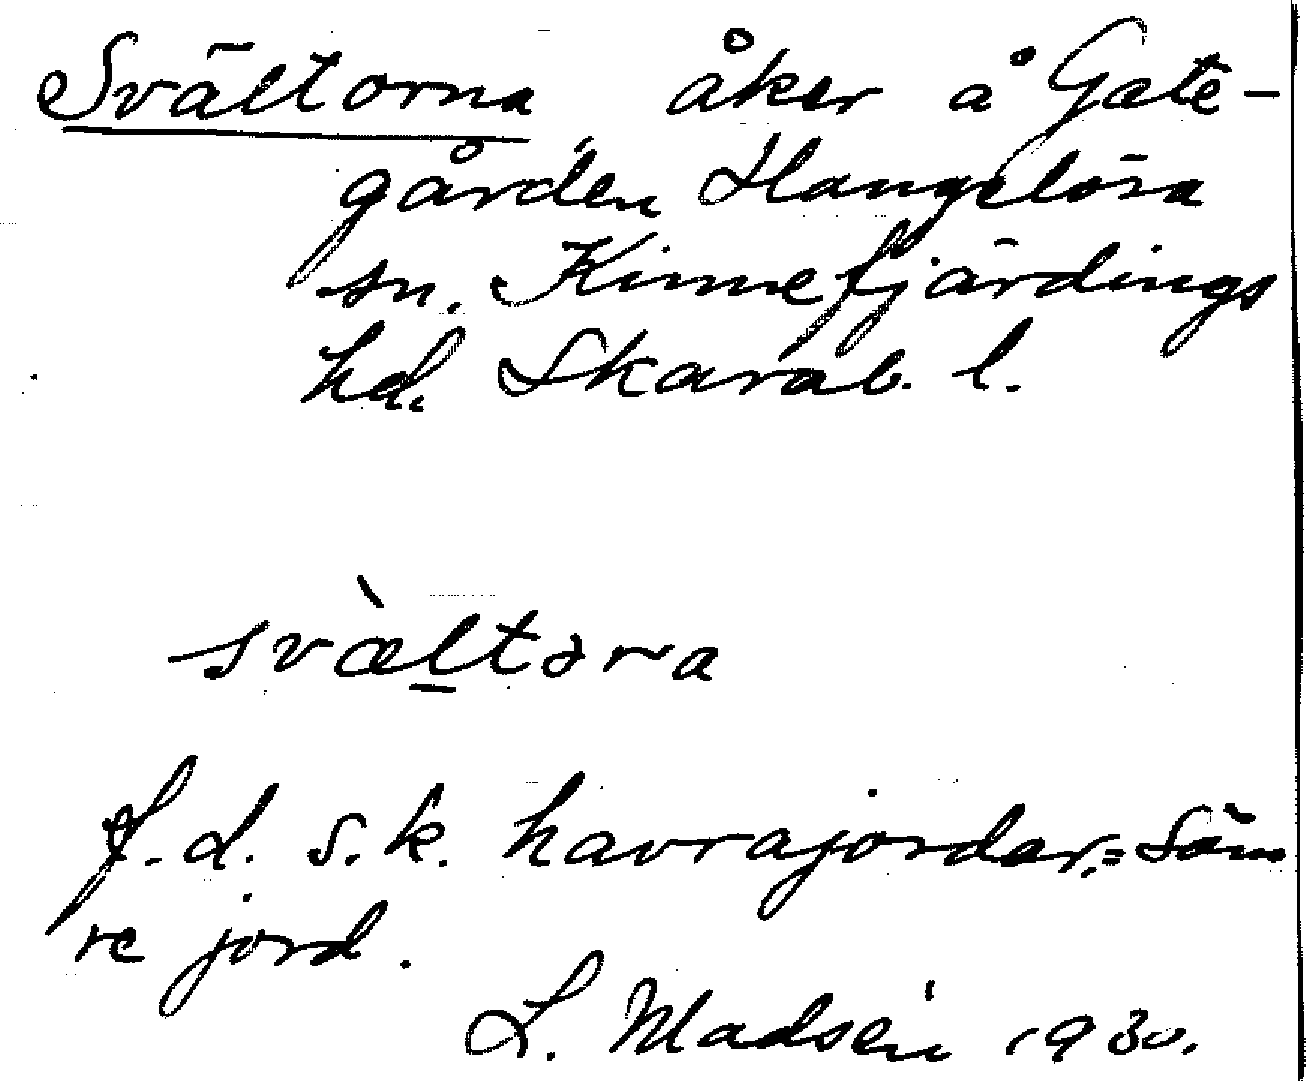 Svältorna åker å Gate-
gården Hangelösa
sn. Kinnefjärdings
hd. Skarab. l.
svæ̀ltəra
f.d. s.k. havrajordar,= säm
re jord.
L. Madsén 1930.